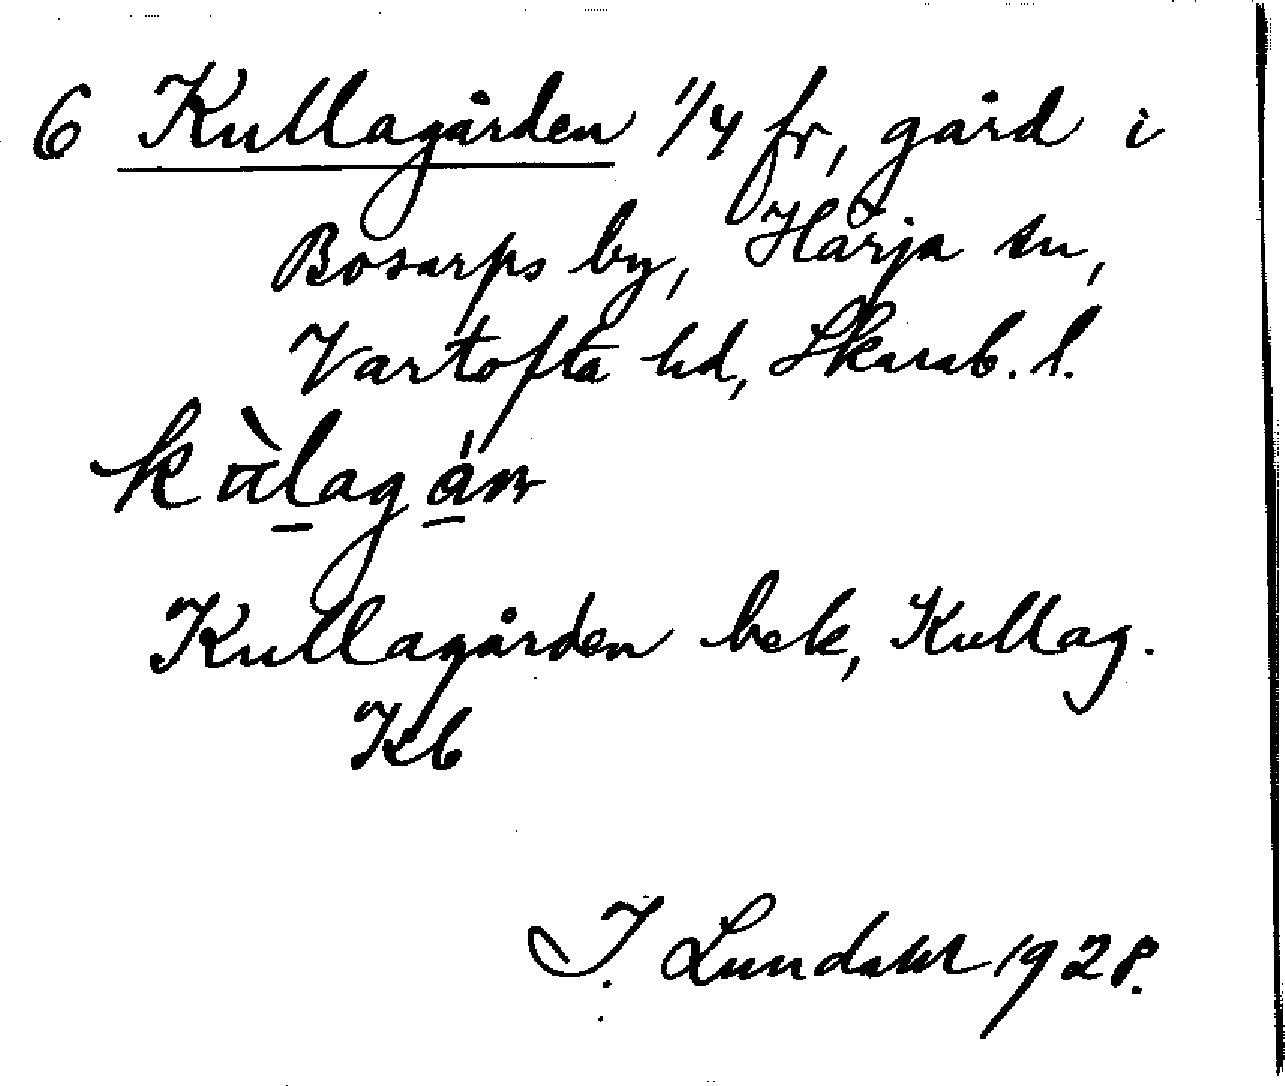 6 Kullagården 1/4 fr, gård i
Bosarps by, Hårja sn,
Vartofta hd, Skarab. l.
Kullagården bek, Kullag.
Kb
I. Lundahl 1928.